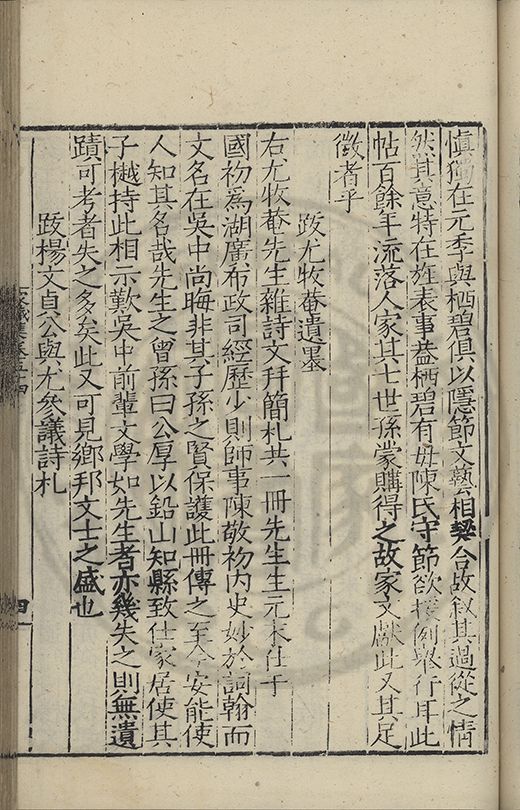 慎獨在元季與栖碧俱以隱節文藝相契合故叙其過從之情
然其意特在旌表事葢栖碧有毋陳氏守節欲援例舉行耳此
帖百餘年流落人家其七世孫蒙購得之故家文獻此又其足
徵者乎
跋尤牧菴遺墨
右尤牧菴先生雜詩文拜簡札共一冊先生生元末仕于
國初爲湖廣布政司經歷少則師事陳敬初内史妙於詞翰而
文名在吳中尚晦非其子孫之賢保護此冊傳之至今安能使
人知其名哉先生之曾孫曰公厚以鉛山知縣致仕家居使其
子樾持此相示歎吳中前輩文學如先生者亦幾失之則無遺
蹟可考者失之多矣此又可見鄉邦文士之盛也
跋楊文貞公與尤參議詩札
四